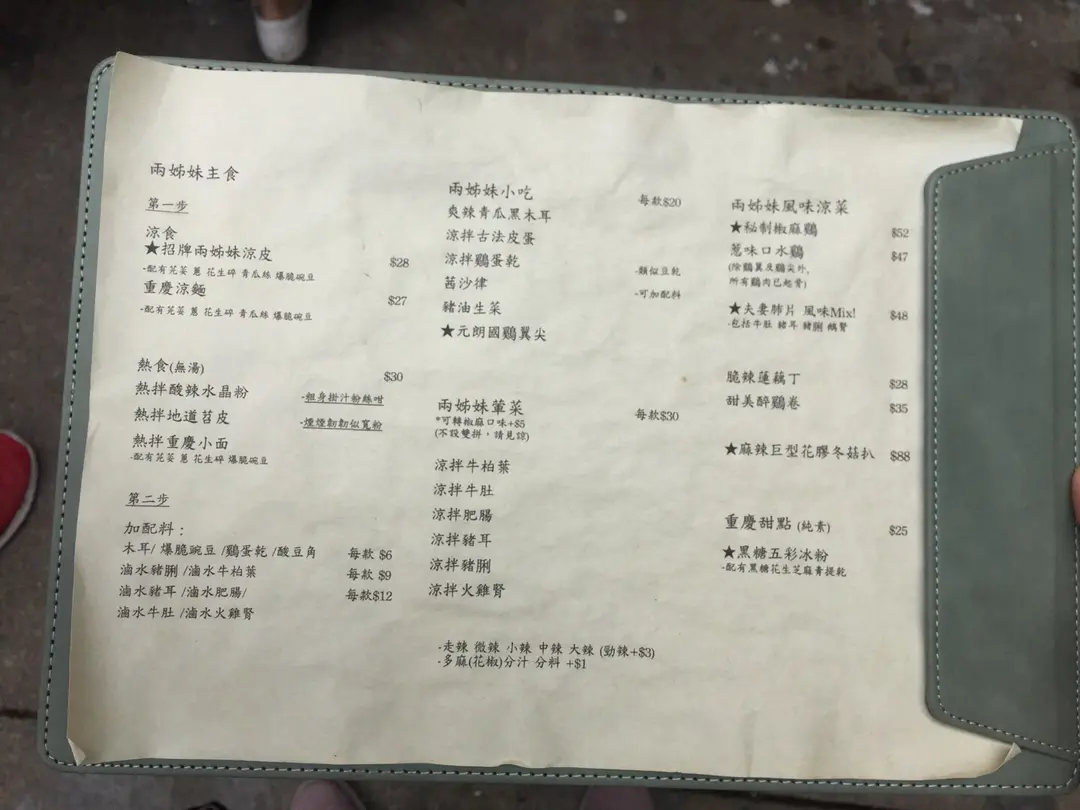 兩姊妹主食
第一步
涼食
★招牌兩姊妹涼皮 $28
-配有芫荽 蔥 花生碎 青瓜絲 爆脆豌豆
重慶涼麵 $27
-配有芫荽 蔥 花生碎 青瓜絲 爆脆豌豆
熱食(無湯) $30
熱拌酸辣水晶粉 -粗身掛汁粉絲咁
熱拌地道苕皮 -煙煙韌韌似寬粉
熱拌重慶小面
-配有芫荽 蔥 花生碎 爆脆豌豆
第二步
加配料：
木耳/ 爆脆豌豆 /鷄蛋乾 /酸豆角 每款 $6
滷水豬脷 /滷水牛柏葉 每款 $9
滷水豬耳 /滷水肥腸/ 每款$12
滷水牛肚 /滷水火雞腎
兩姊妹小吃 每款$20
爽辣青瓜黑木耳
涼拌古法皮蛋
涼拌鷄蛋乾 -類似豆乾
茜沙律 -可加配料
豬油生菜
★元朗國鷄翼尖
兩姊妹葷菜 每款$30
*可轉椒麻口味+$5
(不設雙拼，請見諒)
涼拌牛柏葉
涼拌牛肚
涼拌肥腸
涼拌豬耳
涼拌豬脷
涼拌火雞腎
-走辣 微辣 小辣 中辣 大辣 (勁辣+$3)
-多麻(花椒)分汁 分料 +$1
兩姊妹風味涼菜
★秘制椒麻鷄 $52
蔥味口水鷄 $47
(除鷄翼及鷄尖外,
所有鷄肉已起骨)
★夫妻肺片 風味Mix! $48
-包括牛肚 豬耳 豬脷 鵝腎
脆辣蓮藕丁 $28
甜美醉鷄卷 $35
★麻辣巨型花膠冬菇扒 $88
重慶甜點 (純素) $25
★黑糖五彩冰粉
-配有黑糖花生芝麻青提乾